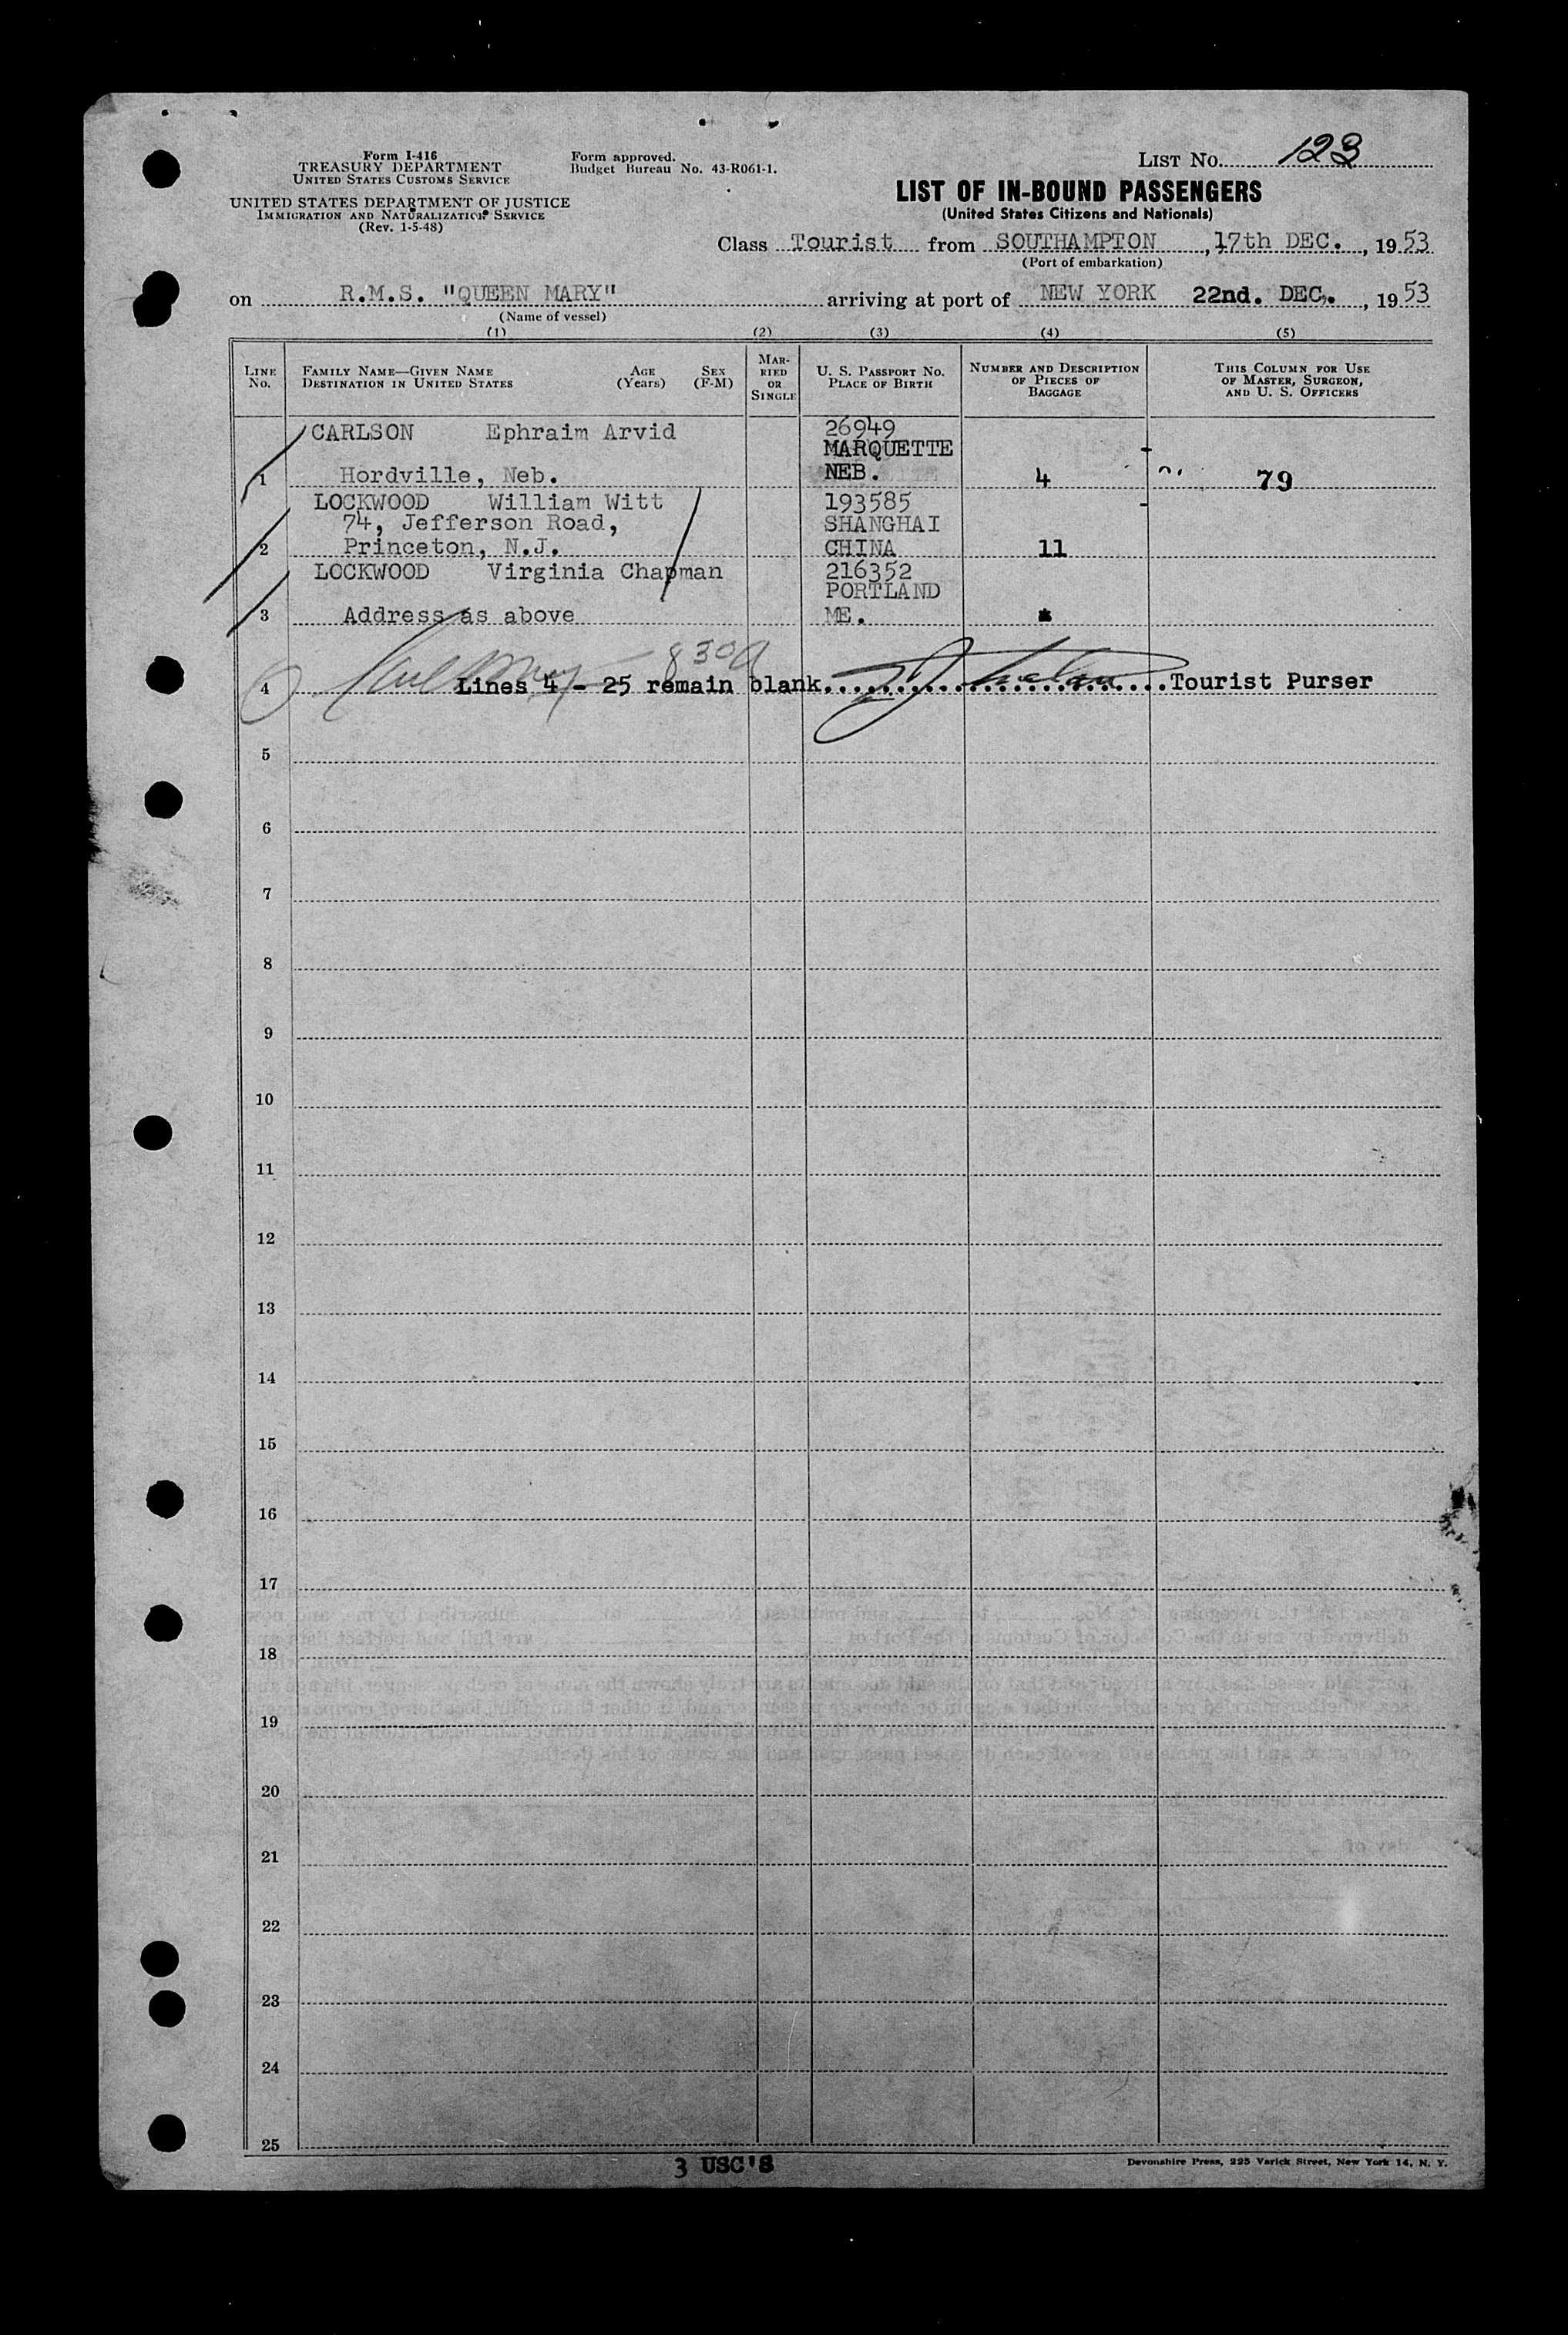 Form I-416
TREASURY DEPARTMENT
UNITED STATES CUSTOMS SERVICE
UNITED STATES DEPARTMENT OF JUSTICE
IMMIGRATION AND NATURALIZATION SERVICE
(Rev. 1-5-48)
Form approved.
Budget Bureau No. 43-R061-1.
LIST No. 123
LIST OF IN-BOUND PASSENGERS
(United States Citizens and Nationals)
Class Tourist from SOUTHAMPTON, 17th DEC., 1953
(Port of embarkation)
on R.M.S. "QUEEN MARY" arriving at port of NEW YORK 22nd. DEC., 1953
(Name of vessel)
(1) (2) (3) (4) (5)
LINE No.
FAMILY NAME—GIVEN NAME
DESTINATION IN UNITED STATES
AGE (Years)
SEX (F-M)
MARRIED OR SINGLE
U. S. PASSPORT NO.
PLACE OF BIRTH
NUMBER AND DESCRIPTION OF PIECES OF BAGGAGE
THIS COLUMN FOR USE OF MASTER, SURGEON, AND U. S. OFFICERS
CARLSON Ephraim Arvid 26949
MARQUETTE
1 Hordville, Neb. NEB. 4 79
LOCKWOOD William Witt 193585
74, Jefferson Road, SHANGHAI
2 Princeton, N.J. CHINA 11
LOCKWOOD Virginia Chapman 216352
PORTLAND
3 Address as above ME. *
830a
4 Lines 4 - 25 remain blank........................Tourist Purser
5
6
7
8
9
10
11
12
13
14
15
16
17
18
19
20
21
22
23
24
25
3 USC'S
Devonshire Press, 225 Varick Street, New York 14, N. Y.